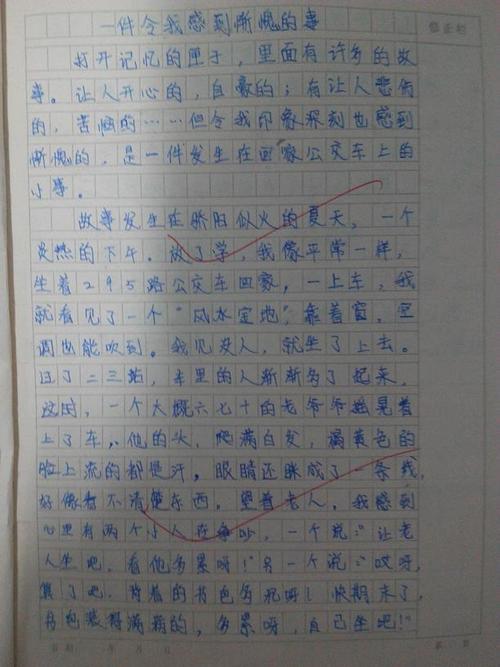 一件令我感到惭愧的事
修正栏
打开记忆的匣子，里面有许多的故
事。让人开心的，自豪的；有让人悲伤
的，苦恼的……但令我印象深刻也感到
惭愧的，是一件发生在回家公交车上的
小事。
故事发生在骄阳似火的夏天，一个
炎热的下午。放了学，我像平常一样，
坐着295路公交车回家，一上车，我
就看见了一个“风水宝地”，靠着窗，空
调也能吹到。我见没人，就坐了上去。
过了二三站，车里的人渐渐多了起来，
这时，一个大概六七十的老爷爷摇晃着
上了车，他的头，爬满白发，橘黄色的
脸上流的都是汗，眼睛还眯成了一条线，
好像看不清楚东西。望着老人，我感到
心里有两个小人在争吵，一个说：“让老
人坐吧，看他多累呀！”另一个说：“哎呀，
算了吧，背着的书包多沉呀！快期末了，
书包装得满满的，多累呀，自己坐吧！”
日期 年 月 日
第 页